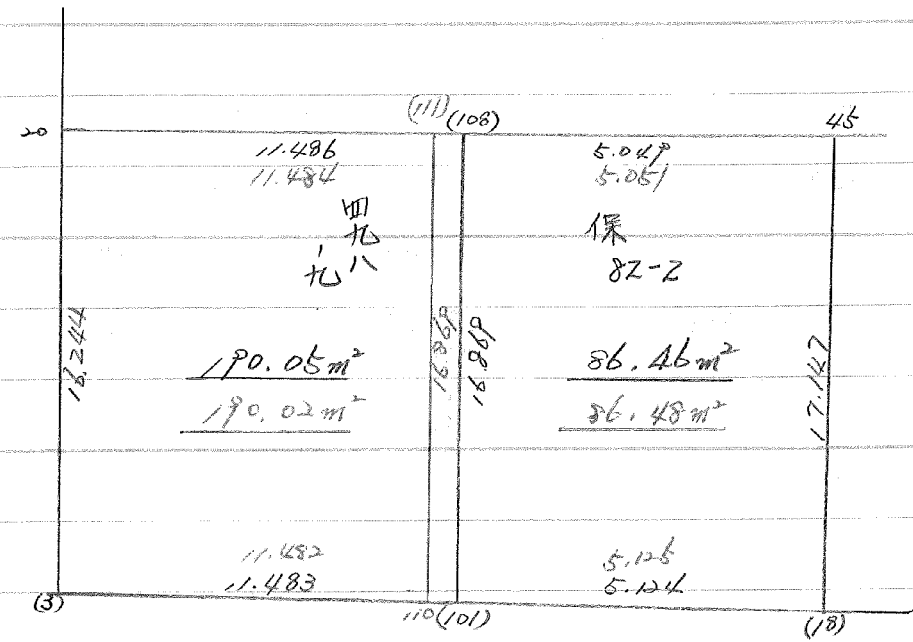 (111) (108)
20
45
11.486
11.484
5.049
5.051
四九八
、九
保
82-2
16.244
16.869
16.869
17.147
190.05m²
190.02m²
86.46m²
86.48m²
11.482
11.483
5.125
5.124
(3)
110(101)
(18)